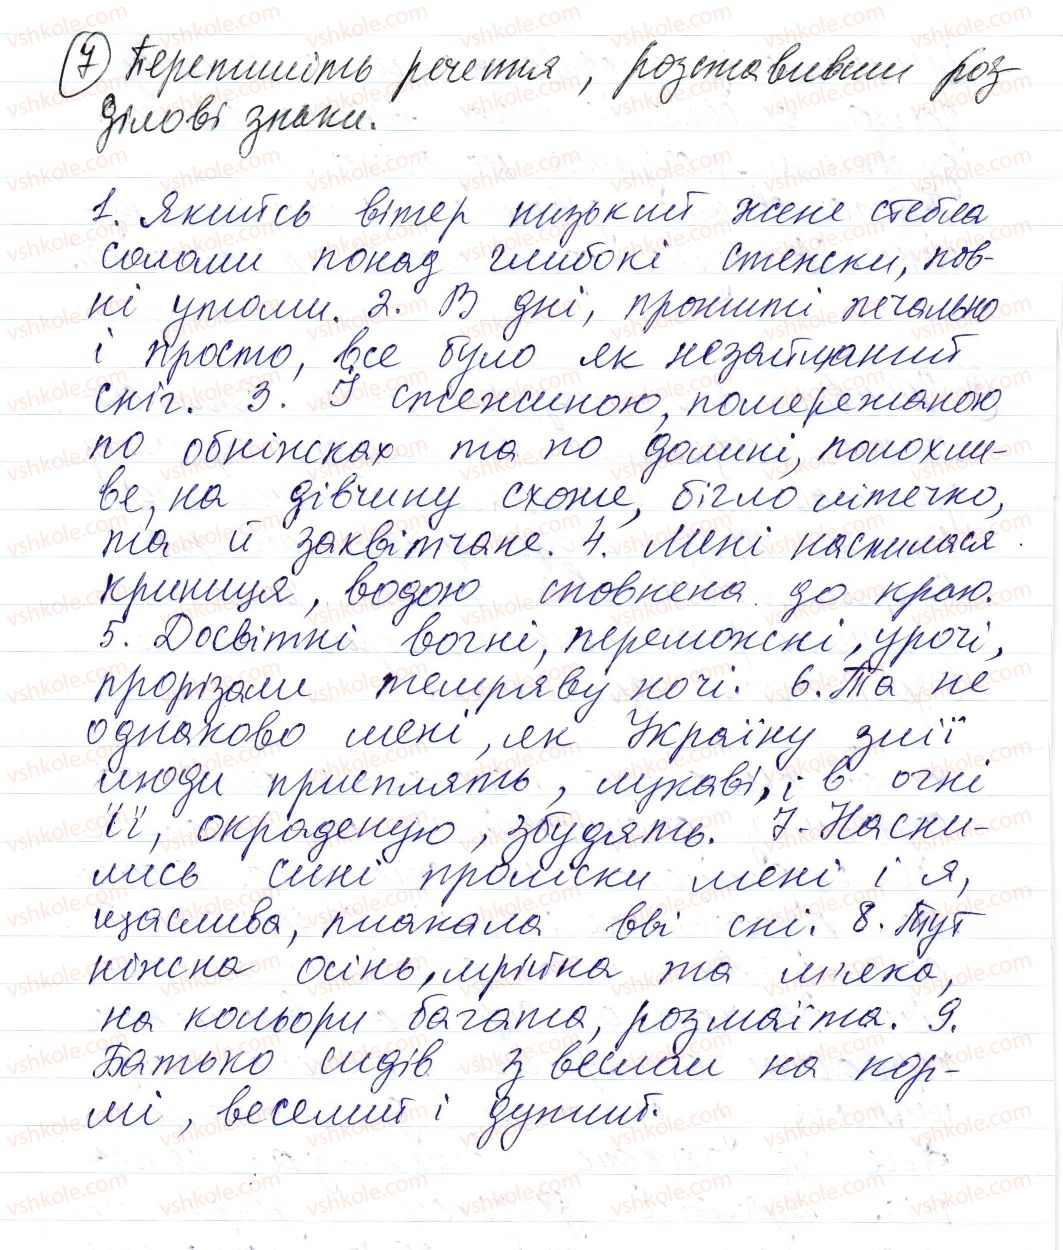 7 Перепишіть речення, розставивши роз-
ділові знаки.
1. Якийсь вітер низький жене стебла
соломи понад глибокі стежки, пов-
ні утоми. 2. В дні, прожиті печально
і просто, все було як незайманий
сніг. 3. І стежиною, помережаною
по обніжках та по долині, полохли-
ве, на дівчину схоже, бігло літечко,
та й заквітчане. 4. Мені наснилася
криниця, водою сповнена до краю.
5. Досвітні вогні, переможні, урочі,
прорізали темряву ночі. 6. Та не
однаково мені, як Україну злії
люди присплять, лукаві, і в огні
її, окраденую, збудять. 7. Насни-
лись сині проліски мені і я,
щаслива, плакала вві сні. 8. Тут
ніжна осінь, мрійна та м'яка,
на кольори багата, розмаїта. 9.
Батько сидів з веслом на кор-
мі, веселий і дужий.